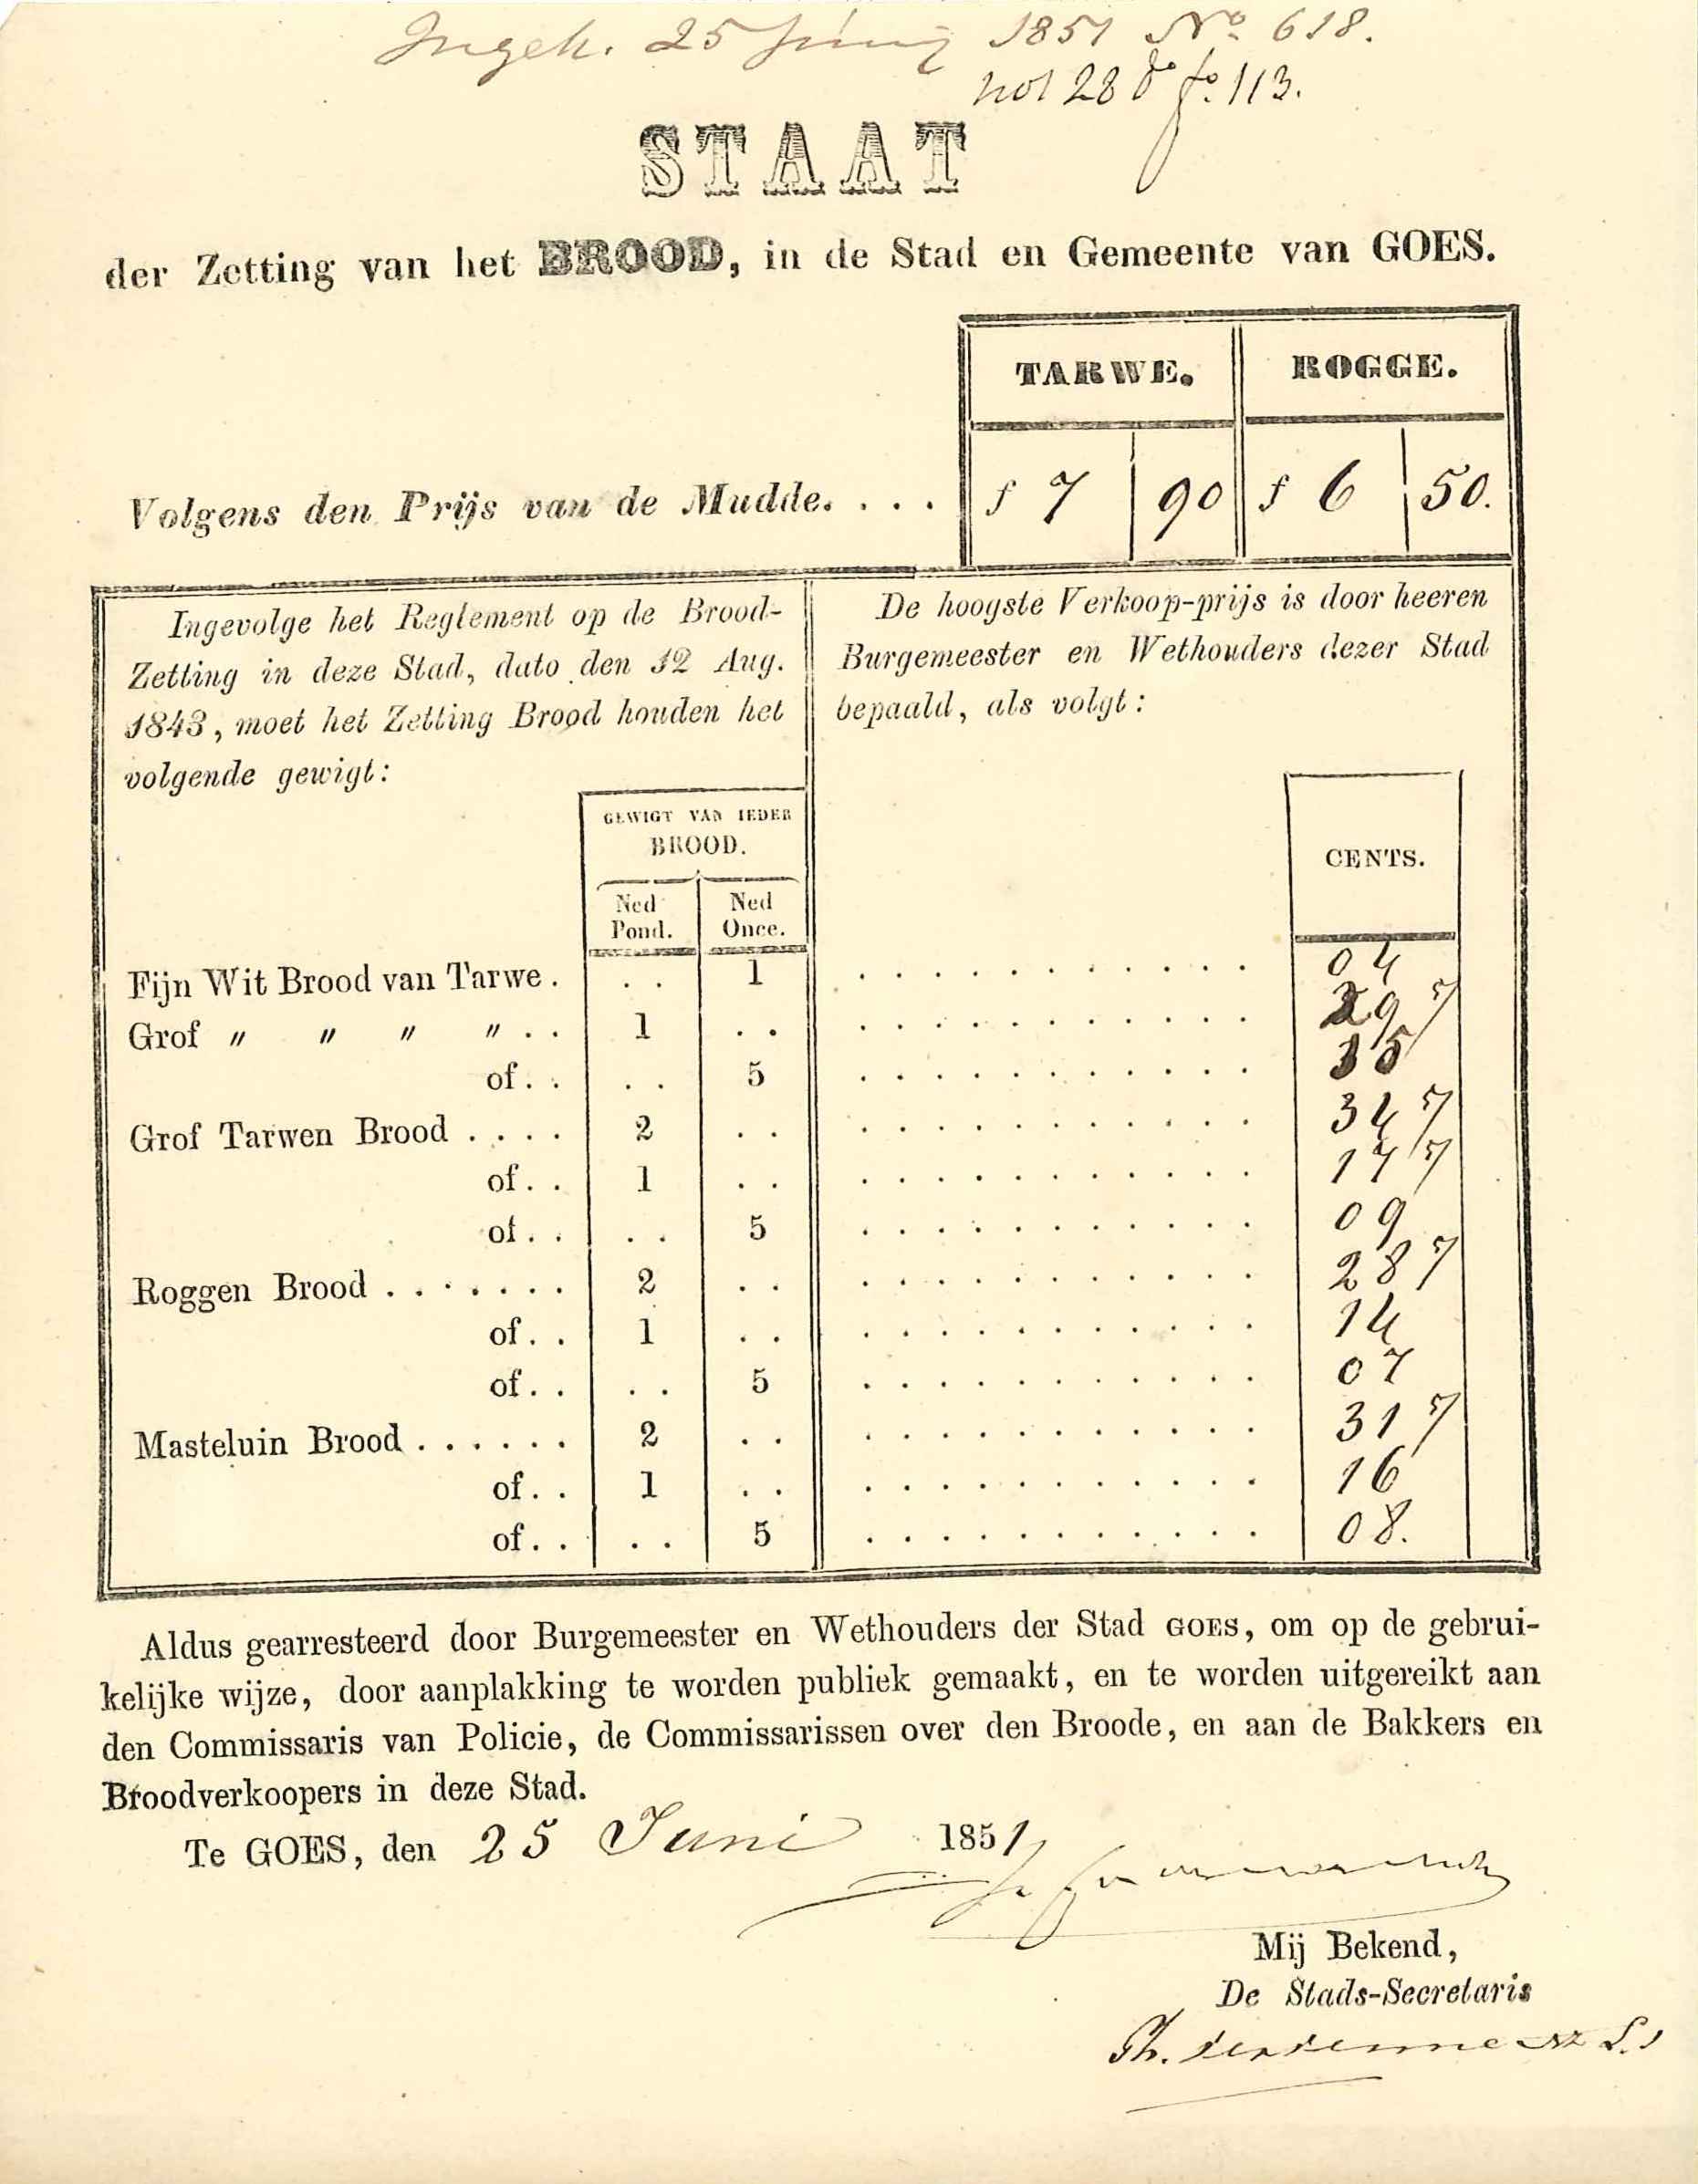 Ingek. 25 Junij 1851 No. 618.
not 28 do fo. 113.
STAAT
der Zetting van het BROOD, in de Stad en Gemeente van GOES.
TARWE. ROGGE.
Volgens den Prijs van de Mudde. . . . f 7 90 f 6 50.
Ingevolge het Reglement op de Brood-
Zetting in deze Stad, dato den 12 Aug.
1843, moet het Zetting Brood houden het
volgende gewigt:
De hoogste Verkoop-prijs is door heeren
Burgemeester en Wethouders dezer Stad
bepaald, als volgt:
GEWIGT VAN IEDER
BROOD.
Ned Pond. Ned Once.
CENTS.
Fijn Wit Brood van Tarwe . . . 1 04
Grof " " " " . . 1 . .
of . . . . 5
Grof Tarwen Brood . . . . 2 . . 34 5/
of . . 1 . . 17 5/
of . . . . 5 09
Roggen Brood . . . . . . . 2 . . 28 5/
of . . 1 . . 14
of . . . . 5 07
Masteluin Brood . . . . . . 2 . . 31 5/
of . . 1 . . 16
of . . . . 5 08.
Aldus gearresteerd door Burgemeester en Wethouders der Stad GOES, om op de gebrui-
kelijke wijze, door aanplakking te worden publiek gemaakt, en te worden uitgereikt aan
den Commissaris van Policie, de Commissarissen over den Broode, en aan de Bakkers en
Broodverkoopers in deze Stad.
Te GOES, den 25 Juni 1851
Mij Bekend,
De Stads-Secretaris